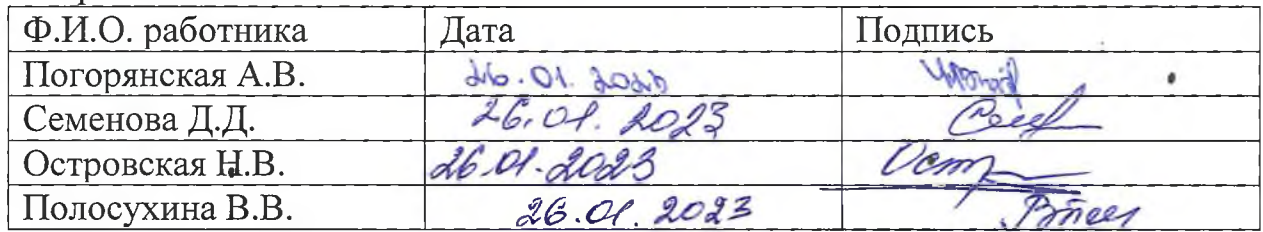 Ф.И.О. работника Дата Подпись
Погорянская А.В. 26.01.2023
Семенова Д.Д. 26.01.2023
Островская Н.В. 26.01.2023 Остр
Полосухина В.В. 26.01.2023